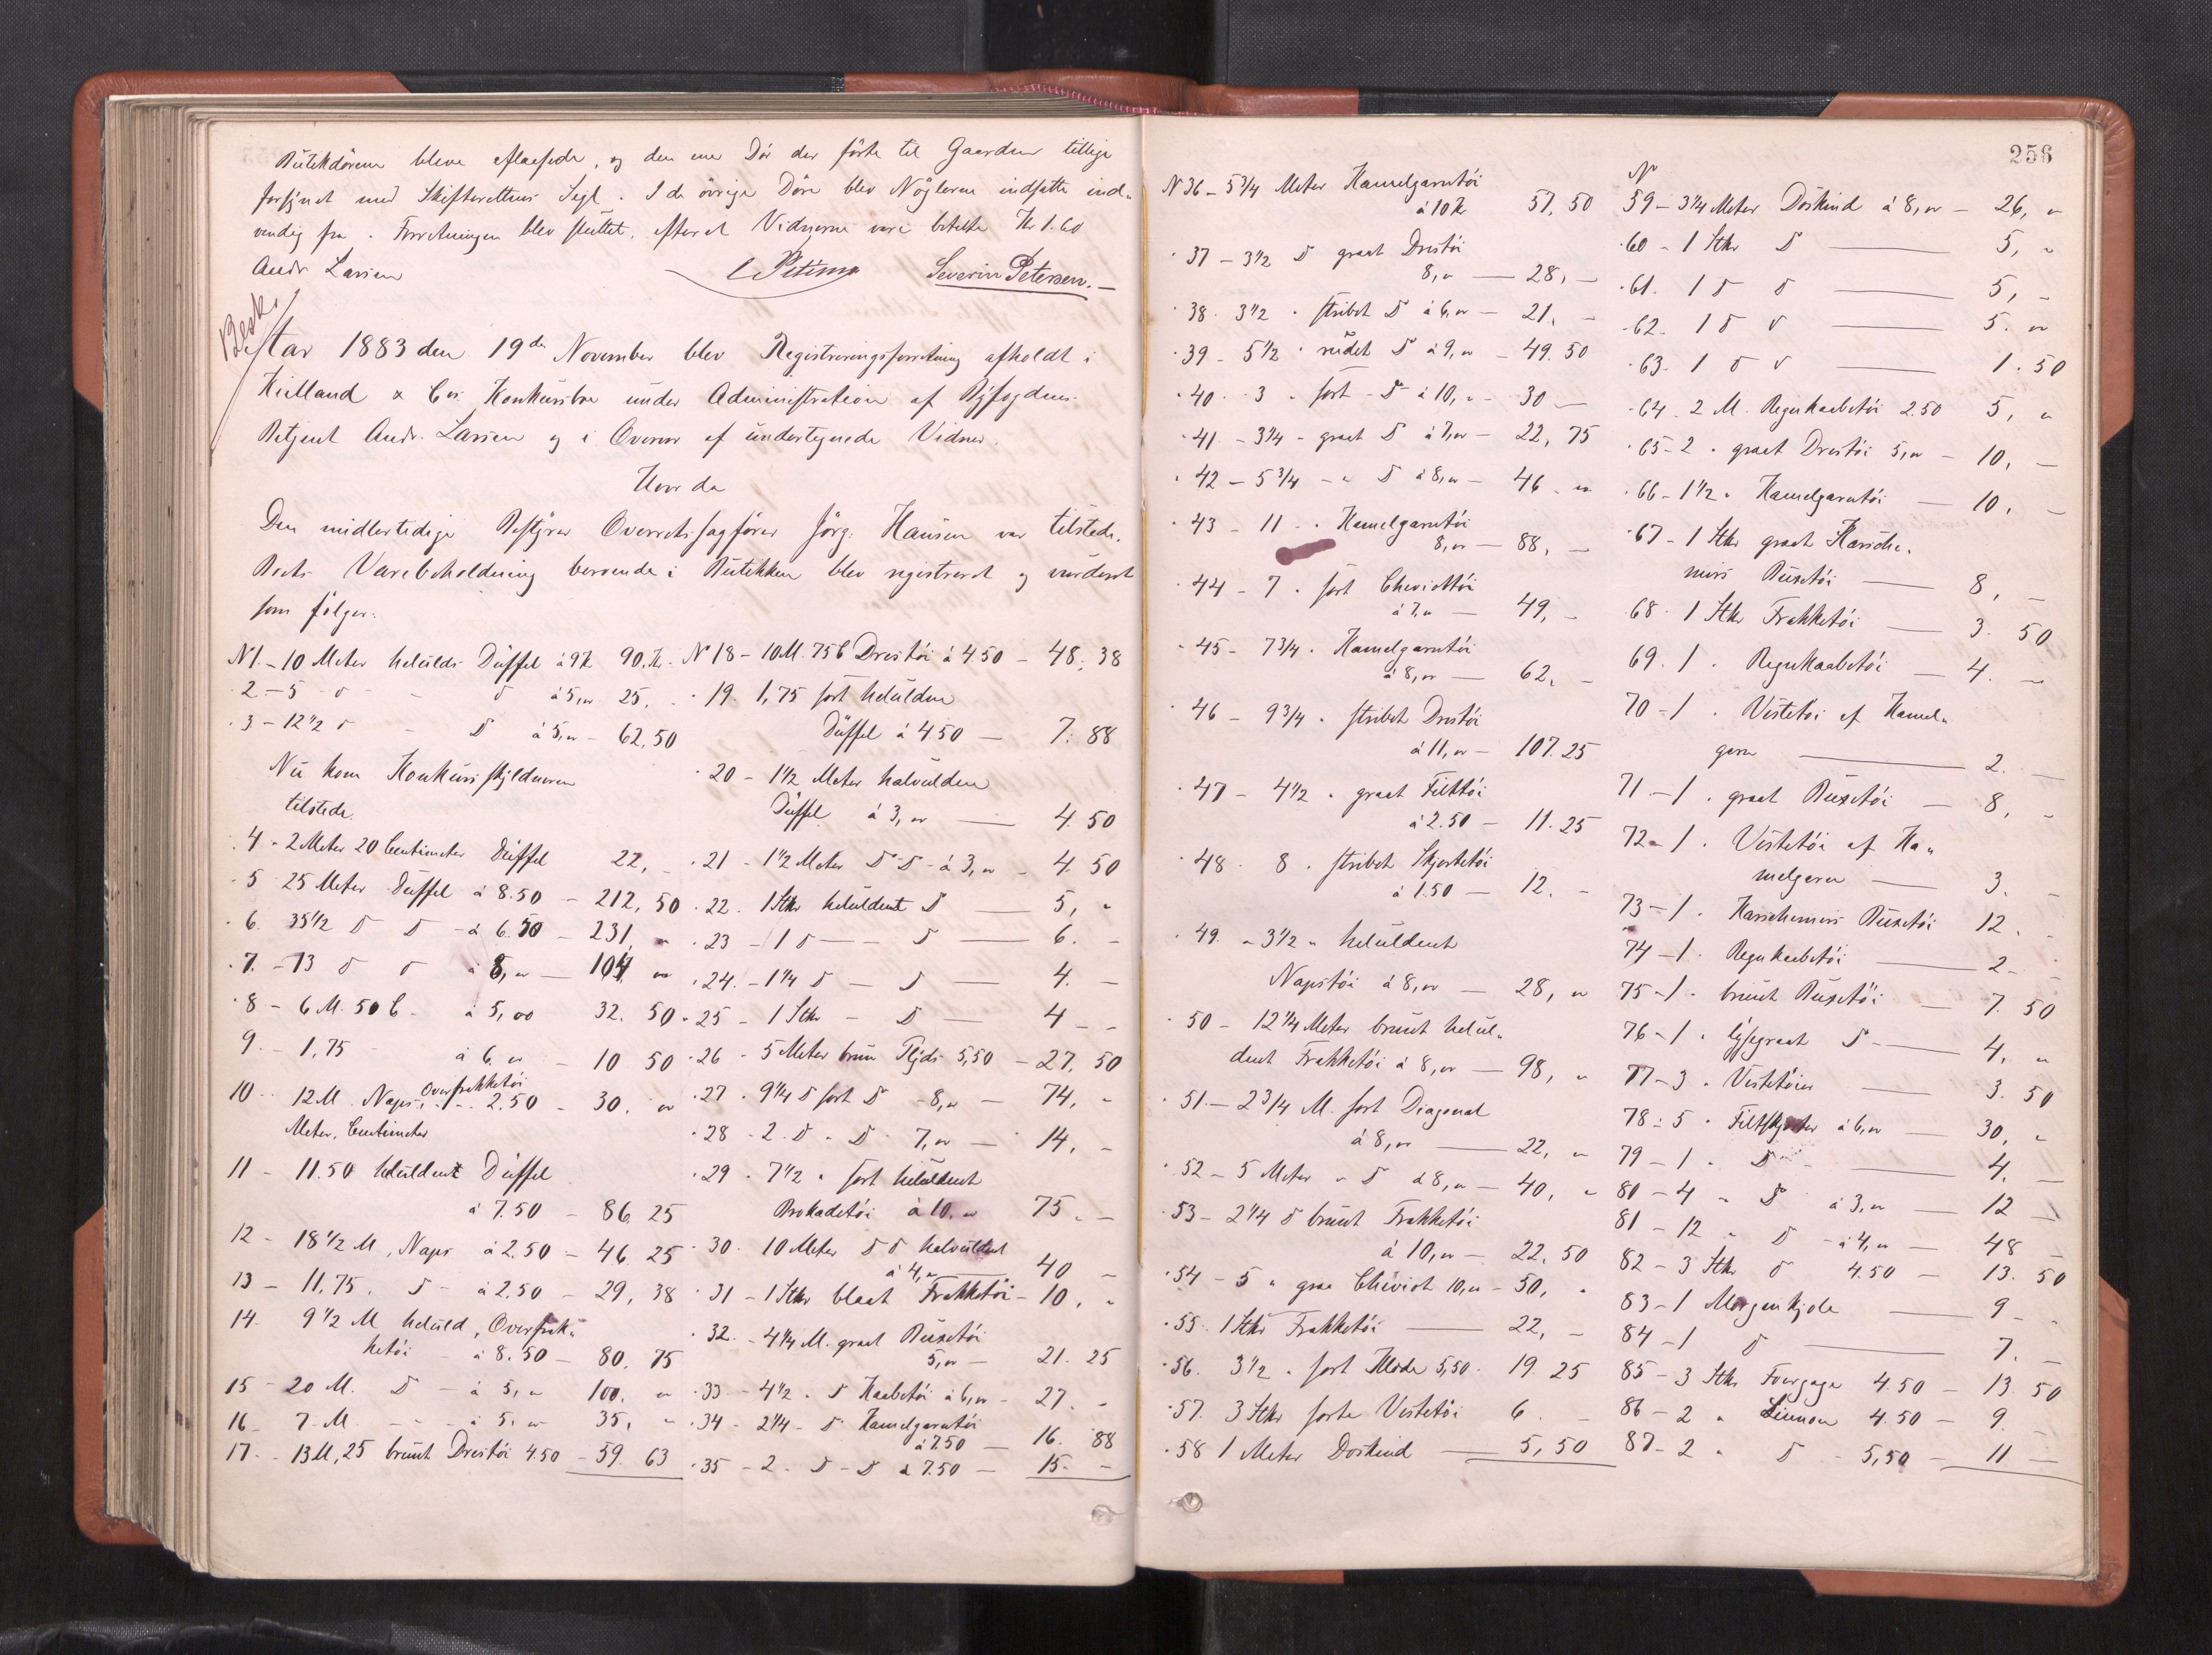 Butikdörene bleve aflaasede, og den ene Dör der förte til Gaarden tillige
forsynet med Skifterettens Segl. I de övrige Döre blev Nöglerne indsatte ind-
vendig fra. Forretningen blev sluttet, efterat Vidnerne vare betalte Kr 1.60
Andr Larsen Severin Petersen.
Besk.
Aar 1883 den 19de November blev Registreringsforretning afholdt i
Kielland & Co. Konkursbo under Administration af Byfogdens
Betjent Andr. Larsen og i Overvær af undertegnede Vidner.
Hvor da
Den midlertidige Bestyrer Overretssagförer Jörg. Hansen var tilstede.
Boets Varebeholdning beroende i Butikken blev registreret og vurderet
som fölger:
N 1. - 10 Meter helulds Düffel à 9 Kr 90, Kr.
2 - 5 D - D à 5,00 25, -
3 - 12 1/2 D - D à 5,00 - 62,50
Nu kom Konkursskyldneren
tilstede.
4 - 2 Meter 20 Centimeter Düffel 22, -
5 25 Meter Düffel à 8.50 - 212,50
6. 35 1/2 D D à 6.50 - 231, "
7. - 13 D D à 8,00 - 104 00
8 - 6 M. 50 C - à 5,00 32. 50
9. - 1,75 à 6 00 - 10 50
10 - 12 M. Naps. Overfrakketöi 2.50 - 30. 00
Meter, Centimeter
11 - 11.50 heluldent Düffel
à 7.50 - 86. 25
12 - 18 1/2 M, Naps à 2.50 - 46. 25
13 - 11,75. D - à 2.50 - 29, 38
14 - 9 1/2 M heluld, Overfrak-
ketöi à 8.50 - 80. 75
15 - 20 M. D - à 5,00 100, 00
16 - 7 M - - à 5. 00 35, "
17 - 13 M, 25 brunt Drestöi 4.50 - 59. 63
N 18 - 10 M. 75 C Drestöi à 4.50 - 48,38
19. 1,75 sort helulden
Düffel à 4.50 - 7. 88
20 - 1 1/2 Meter halvulden
Düffel à 3,00 - 4. 50
21 - 1 1/2 Meter D - D - à 3,00 - 4. 50
22. 1 Stkr heluldent D - 5, "
23 - 1 D - - D - 6. -
24. - 1 1/4 D - D - 4. -
25 - 1 Stkr - D - 4 - -
26 - 5 Meter brun Plyds 5,50 - 27,50
27. 9 1/4 D sort D - 8,00 - 74, -
28 - 2. D - D 7,00 - 14, -
29 - 7 1/2 " sort heluldent
Brokadetöi à 10.00 75. -
30. 10 Meter D D halvuldent
à 4,00 - 40 -
31 - 1 Stkr blaat Frakketöi - 10, "
32. - 4 1/4 M. graat Buxetöi
5,00 - 21. 25
33 - 4 1/2 " D Kaabetöi à 6,00 - 27. -
34 - 2 1/4 - D Kamelgarntöi
à 7.50 - 16. 88
35 - 2 - D - D à 7.50 - 15. -
256
N 36 - 5 3/4 Meter Kamelgarntöi
à 10 Kr 57,50
37 - 3 1/2 D graat Drestöi
8,00 - 28, -
38. 3 1/2 " stribet D à 6,00 - 21, -
39 - 5 1/2 " rudet D à 9,00 - 49.50
40. 3 " sort - D à 10, - 30 -
41 - 3 1/4 - graat D à 7,00 - 22, 75
42 - 5 3/4 - " D à 8,00 - 46. 00
43 - 11 - " Kamelgarntöi
8,00 - 88, -
44 - 7 " sort Cheviottöi
à 7,00 - 49, -
45 - 7 3/4 " Kamelgarntöi
à 8,00 - 62, -
46 - 9 3/4 " stribet Drestöi
à 11,00 - 107.25
47 - 4 1/2 " graat Filttöi
à 2.50 - 11.25
48 - 8 " stribet Skjortetöi
à 1.50 - 12. -
49. - 3 1/2 " heluldent
Napstöi à 8,00 - 28, 00
50 - 12 1/4 Meter brunt helul-
dent Frakketöi à 8,00 - 98, "
51 - 2 3/4 M. sort Diagonal
à 8,00 - 22, "
52 - 5 Meter " D à 8,00 - 40, "
53 - 2 1/4 D brunt Frakketöi
à 10,00 - 22.50
54 - 5 " graa Cheviot 10,00 - 50, "
55 1 Stkr Frakketöi - 22, -
56. 3 1/2 " sort Klæde 5,50 - 19 25
57. 3 Stkr sorte Vestetöi 6. -
58 1 Meter Doskind - 5,50
No
59 - 3 1/4 Meter Döskind à 8,00 - 26, "
60 - 1 Stkr D - 5, "
61. 1 D D - 5, -
62. 1 D D - 5. 00
63. 1 D D - 1.50
64. 2 M. Regnkaabetöi 2.50 5, "
65 - 2 " graat Drestöi 5,00 - 10, -
66 - 1 1/2 " Kamelgarntöi - 10, -
67 - 1 Stkr graat Kasche-
mirs Buxetöi - 8, -
68. 1 Stkr Frakketöi - 3. 50
69. 1 " Regnkaabetöi - 4. -
70 - 1 " Vestetöi af Kamel-
garn - 2. -
71 - 1 " graat Buxetöi - 8, -
72 - 1 " Vestetöi af Ka-
melgarn - 3. -
73 - 1 " Kaschemirs Buxetöi 12. -
74 - 1 " Regnkaabetöi - 2 - -
75 - 1 " brunt Buxetöi - 7. 50
76 - 1 " lysegraat D - - 4. "
77 - 3 " Vestetöier - 3. 50
78 - 5 " Filtskjorter à 6,00 - 30, "
79 - 1 " D - 4. -
80 - 4 " D à 3,00 - 12 -
81 - 12 " D - à 4,00 - 48 -
82 - 3 Stkr D 4.50 - 13. 50
83 - 1 Morgenkjole - 9 - -
84 - 1 D - 7. -
85 - 3 Stkr 4.50 - 13. 50
86 - 2 " 4.50 - 9. -
87 - 2 " D - 5,50 - 11 -